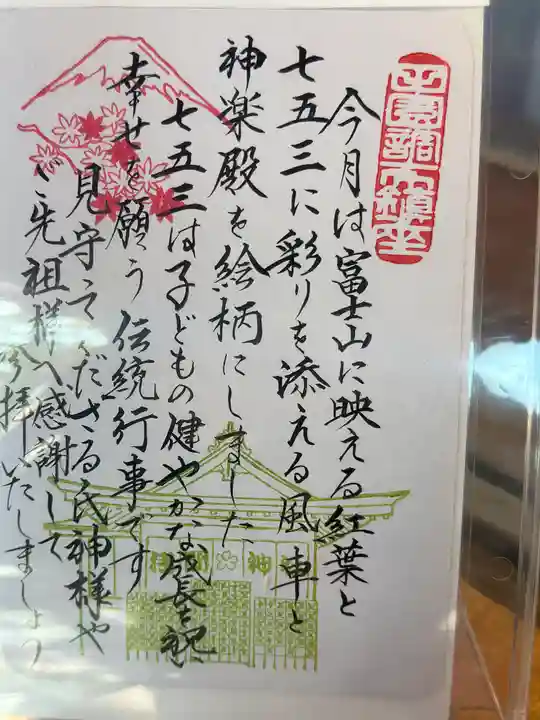 今月は富士山に映える紅葉と
七五三に彩りを添える風車と
神楽殿を絵柄にしました
七五三は子どもの健やかな成長を祝い
幸せを願う伝統行事です
見守ってくださる氏神様や
ご先祖様へ感謝して
参拝いたしましょう
調布鎮座
神